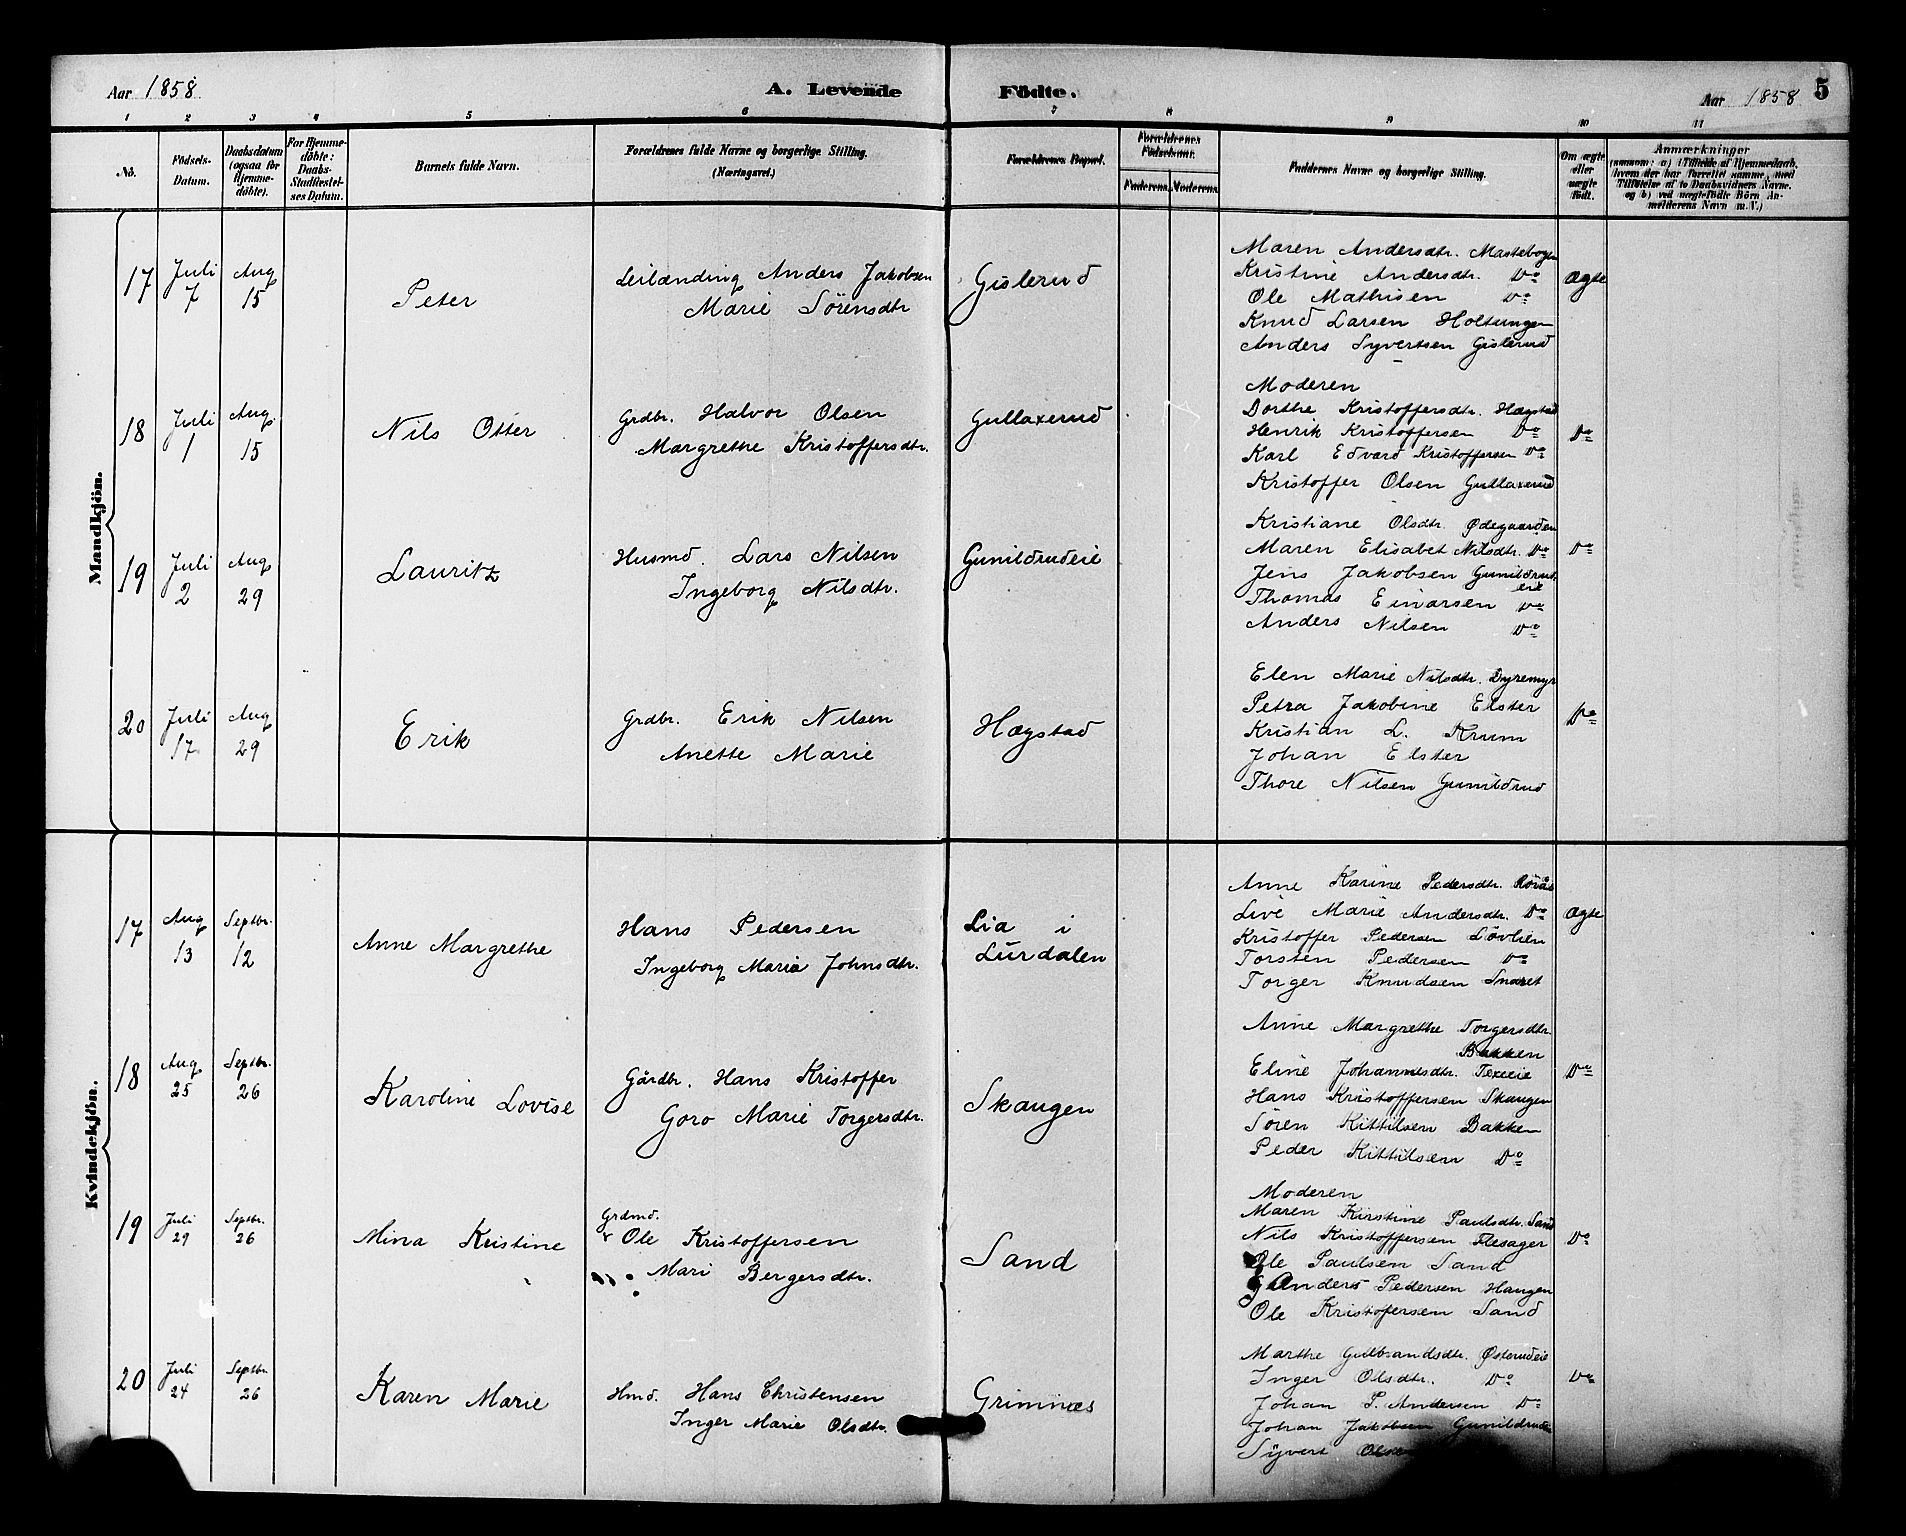 Aar 1858
A. Levende Födte.
Aar 1858 5
1 2 3 4 5 6 7 8 9 10 11
No.
Födsels-Datum.
Daabsdatum (ogsaa for Hjemme-döbte).
For Hjemme-döbte: Daabs-Stadfæstel-ses Datum.
Barnets fulde Navn.
Forældrenes fulde Navne og borgerlige Stilling.
(Næringsvei.)
Forældrenes Bopæl.
Forældrenes Födselsaar.
Faderens. Moderens.
Faddernes Navne og borgerlige Stilling.
Om ægte eller uægte födt.
Anmærkninger
Mandkjön.
17 Juli 7 Aug 15
Peter
Leilænding Anders Jakobsen
Marie Sörensdtr
Gislerud
Maren Andersdtr.
Kristine Andersdtr. Do
Ole Mathisen Do
Knud Larsen Holtungen
Anders Syvertsen Gislerud
Ægte
18 Juli 1 Aug. 15
Nils Otter
Grdbr. Halvor Olsen
Margrethe Kristoffersdtr.
Gullaxerud
Moderen
Dorthe Kristoffersdtr. Hægstad
Henrik Kristoffersen Do
Karl Edvard Kristoffersen Do
Kristoffer Olsen Gullaxerud
Do
19 Juli 2 Aug 29
Lauritz
Husmd. Lars Nilsen
Ingeborg Nilsdtr.
Gunildrudeie
Kristiane Olsdtr. Ødegaarden
Maren Elisabet Nilsdtr. Do
Jens Jakobsen Gunildrud
eie
Thomas Einarsen Do
Anders Nilsen Do
Do
20 Juli 17 Aug 29
Erik
Grdbr. Erik Nilsen
Anette Marie
Hægstad
Elen Marie Nilsdtr. Dyremyr
Petra Jakobine Elster
Kristian L. Krum
Johan Elster
Thore Nilsen Gunildrud
Do
Kvindekjön.
17 Aug 13 Septbr. 12
Anne Margrethe
Hans Pedersen
Ingeborg Maria Johnsdtr.
Lia i
Lurdalen
Anne Karine Pedersdtr.
Live Marie Andersdtr. Do
Kristoffer Pedersen Lövlien
Torsten Pedersen Do
Torger Knudsen
Ægte
18 Aug 25 Septbr. 26
Karoline Lovise
Gårdbr. Hans Kristoffer
Goro Marie Torgersdtr.
Skaugen
Anne Margrethe Torgersdtr.
Bakken
Eline Johannesdtr. Texeie
Hans Kristoffersen Skaugen
Sören Kittilsen Bakken
Peder Kittilsen Do
Do
19 Juli 29 Septbr. 26
Mina Kristine
Grdmd.
Ole Kristoffersen
Mari Bergersdtr.
Sand
Moderen
Maren Kirstine Paulsdtr. Sand
Nils Kristoffersen Flesager
Ole Paulsen Sand
Anders Pedersen Haugen
Ole Kristofersen Sand
Do
20 Juli 24 Septbr 26
Karen Marie
Hmd. Hans Christensen
Inger Marie Olsdtr.
Grimnæs
Marthe Gulbrandsdtr. Østerudeie
Inger Olsdtr. Do
Johan P. Andersen Do
Johan Jakobsen
Syvert
Do